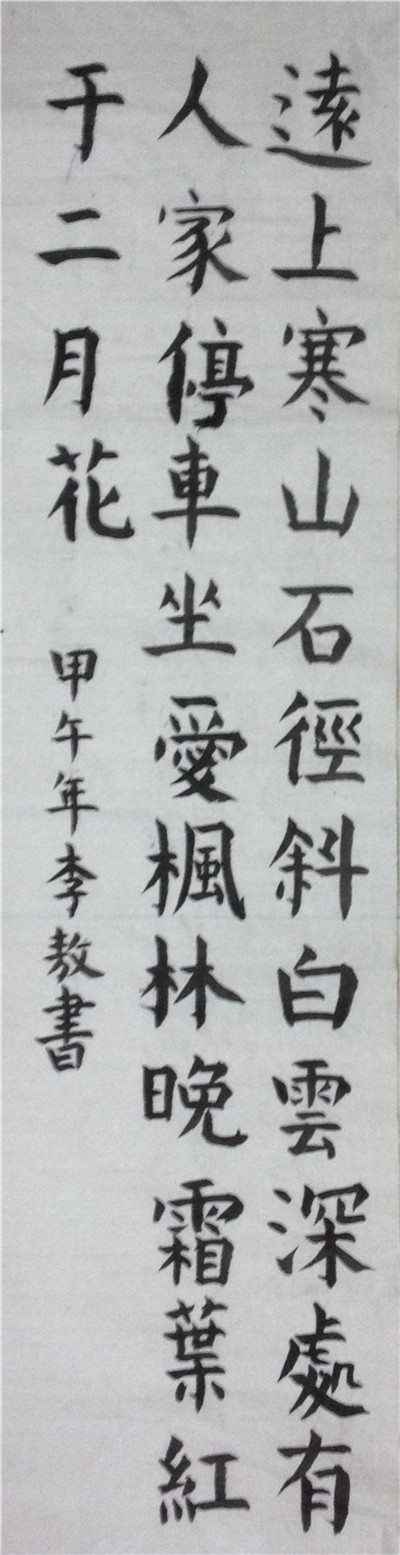 遠上寒山石徑斜白雲深處有
人家停車坐愛楓林晚霜葉紅
于二月花
甲午年李敖書